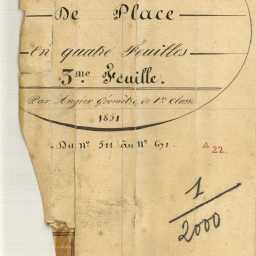 De Place
En quatre Feuilles
3me Feuille.
Par Augier Géomètre de 1re Classe
1851
Du No 511 au No 671.
A 22
1
2000